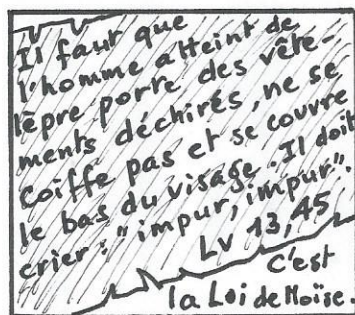 Il faut que
l'homme atteint de
lèpre porte des vête-
ments déchirés, ne se
coiffe pas et se couvre
le bas du visage. Il doit
crier : "impur, impur".
Lv 13,45
C'est
la Loi de Moïse.